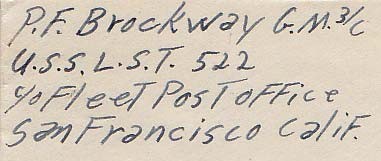 P.F. Brockway G.M.3/c
U.S.S. L.S.T. 522
c/o Fleet Post Office
San Francisco Calif.